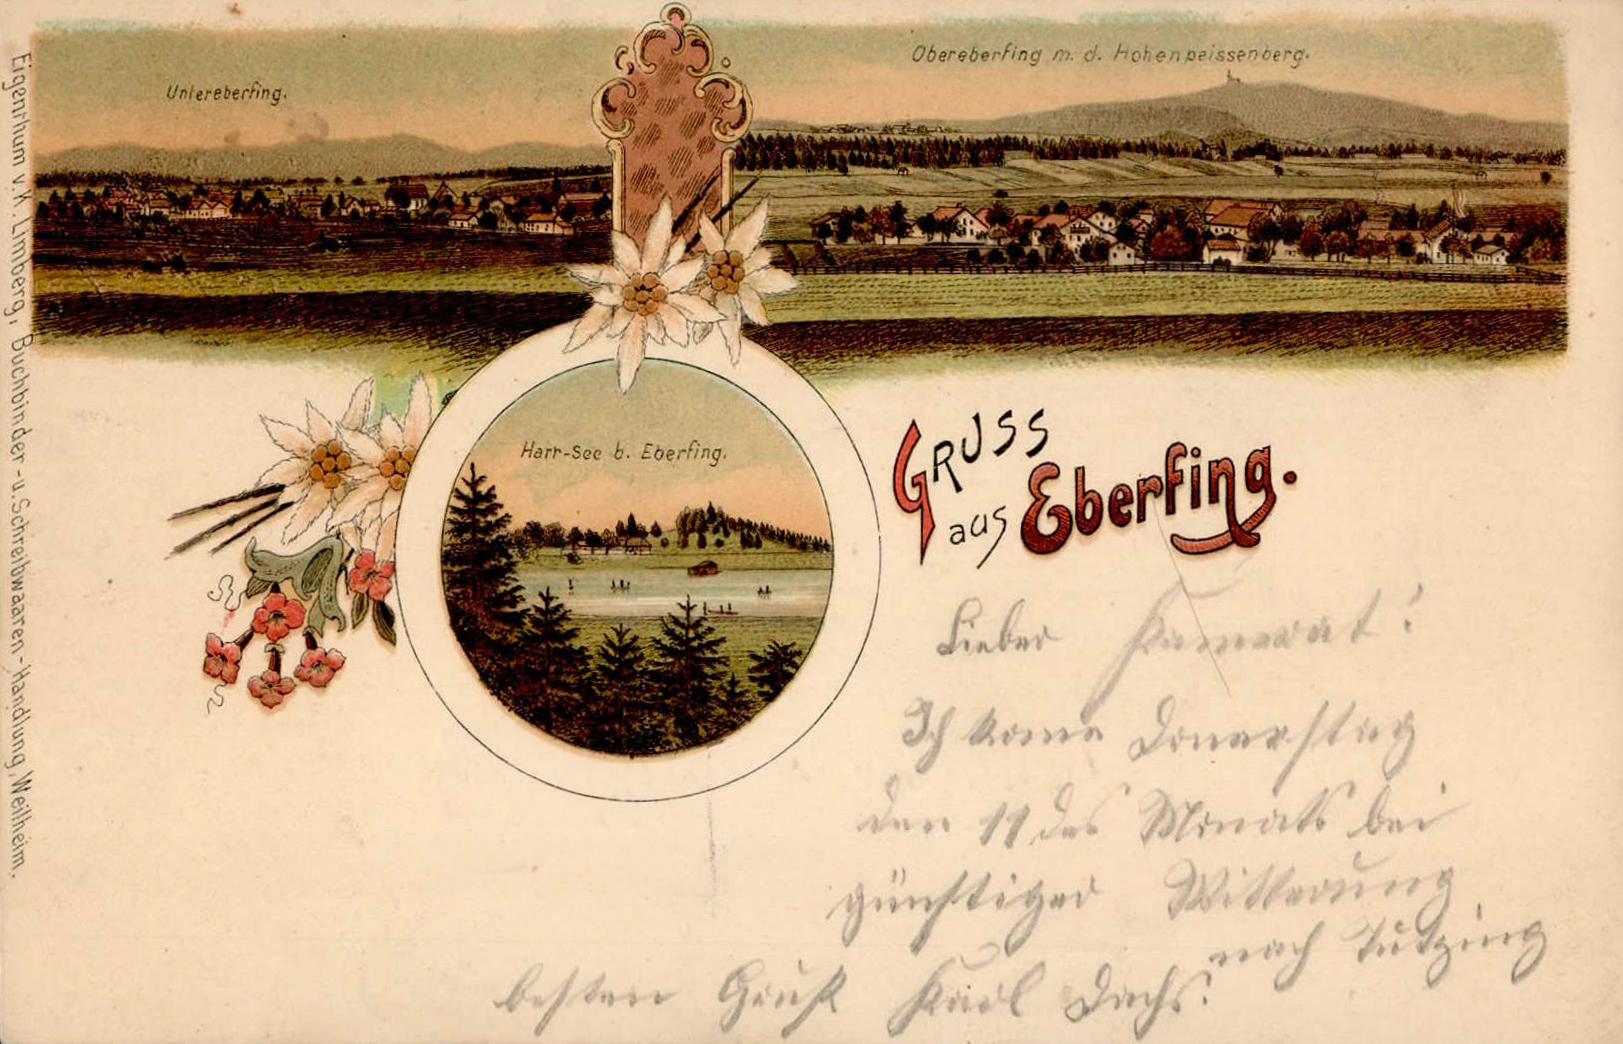 Untereberfing.
Obereberfing m. d. Hohenpeissenberg.
Harr-See b. Eberfing.
Gruss
aus Eberfing.
Lieber Kamerat!
Ich kome Donerstag
den 11 des Monats bei
günstiger Witterung
nach Tutzing
besten Gruß Karl Dachs.
Eigenthum v. K. Limberg, Buchbinder-u. Schreibwaaren-Handlung, Weilheim.